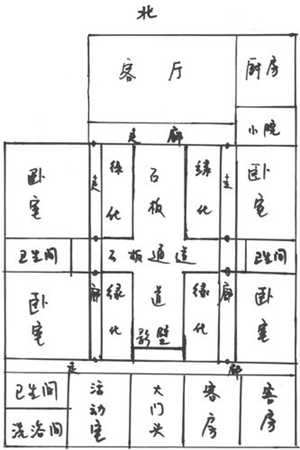 北
客厅
厨房
走廊
小院
卧室
走
绿化
石板
绿化
走
卧室
卫生间
石板通道
卫生间
卧室
廊
绿化
道
绿化
廊
卧室
影壁
走廊
卫生间
洗浴间
活动室
大门头
客房
客房